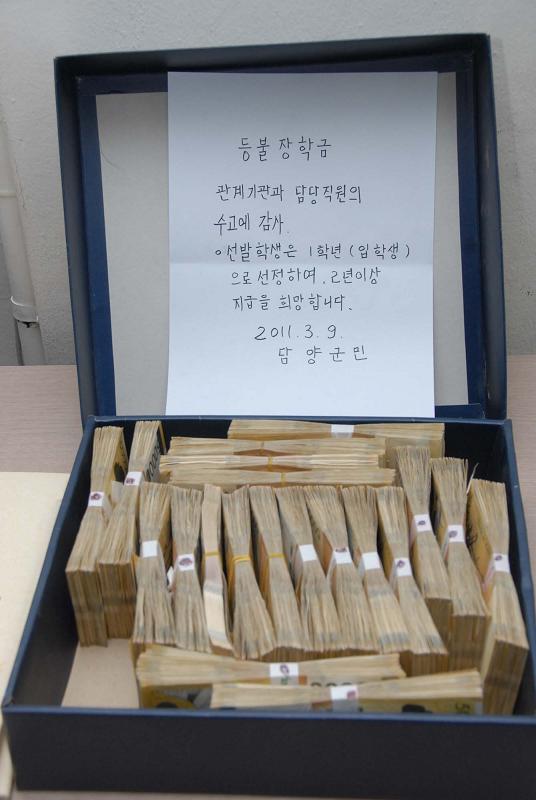 등불장학금
관계기관과 담당직원의
수고에 감사.
○선발학생은 1학년(입학생)
으로선정하여. 2년이상
지급을 희망합니다.
2011. 3. 9.
담양군민